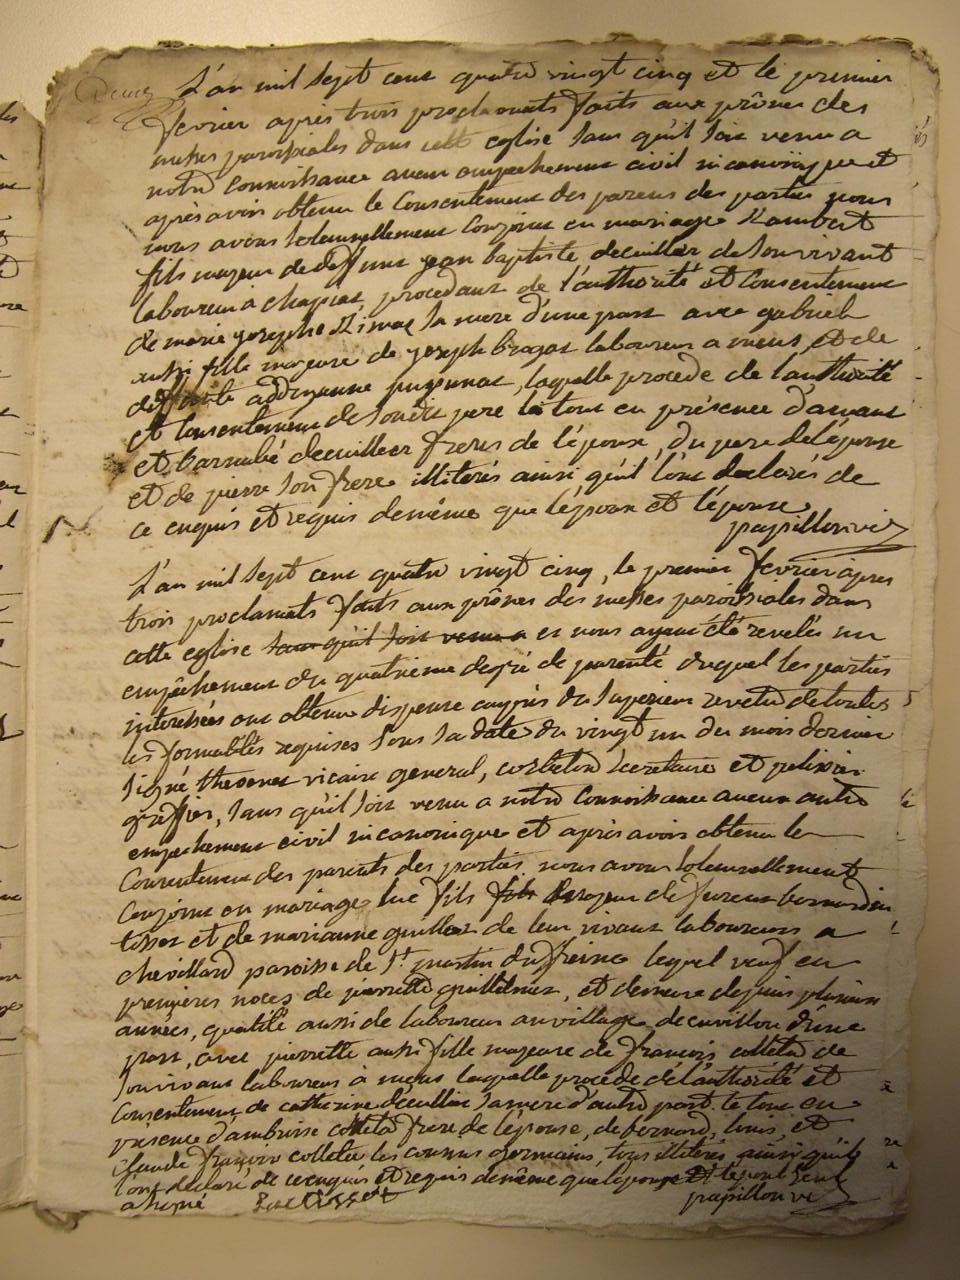 L'an mil sept cent quatre vingt cinq et le premier
fevrier apres trois proclamats faits aux prônes des
messes paroissiales dans cette eglise sans qu'il soit venu a
notre connoissance aucun empechement civil ni canonique et
après avoir obtenu le Consentement des parens des parties nous
nous avons solemnellement Conjoint en mariage Lambert
fils majeur de deffunt jean baptiste decuillier de son vivant
laboureur a procedant de l'authorité et Consentement
de marie josephe sa mere d'une part avec gabriele
aussi fille majeure de joseph laboureur a et de
deffunte laquelle procede de l'authorité
et Consentement de son dit pere le tout en présence d'amant
et Barnabé decuillier freres de l'époux, du pere de l'épouse
et de pierre son frere illiterés ainsi qu'il l'ont declarés de
ce enquis et requis de même que l'époux et l'épouse
papillon vic
L'an mil sept cent quatre vingt cinq, le premier fevrier apres
trois proclamats faits aux prônes des messes paroissiales dans
cette eglise sans qu'il soit venu a et nous ayant été revelés un
empêchement du quatrieme degré de parenté duquel les parties
interessées ont obtenu dispense auprès du Superieur revetu de toutes
les formalités requises sous la date du vingt un du mois dernier
signé vicaire general, secretaire et
greffier, sans qu'il soit venu a notre Connoissance aucun autre
empechement civil ni canonique et après avoir obtenu le
Consentement des parents des parties nous avons solemnellement
Conjoint en mariage luc fils fils majeur de bernardin
tissot et de marianne de leur vivant laboureurs a
chevillard paroisse de St martin du freine lequel veuf en
premières noces de pierrette et demeure depuis plusieurs
années, qualité aussi de laboureur au village d'une
part, avec pierrette aussi fille majeure de françois colletaz de
son vivant laboureur à laquelle procede de l'authorité et
Consentement de catherine sa mere d'autre part le tout en
présence d'ambroise frere de l'épouse, de bernard, louis, et
claude françois les cousins germains, tous illiterés ainsi qu'ils
l'ont declaré de ce enquis et requis de même que l'épouse et l'époux seul
a signé Luc Tissot papillon vic